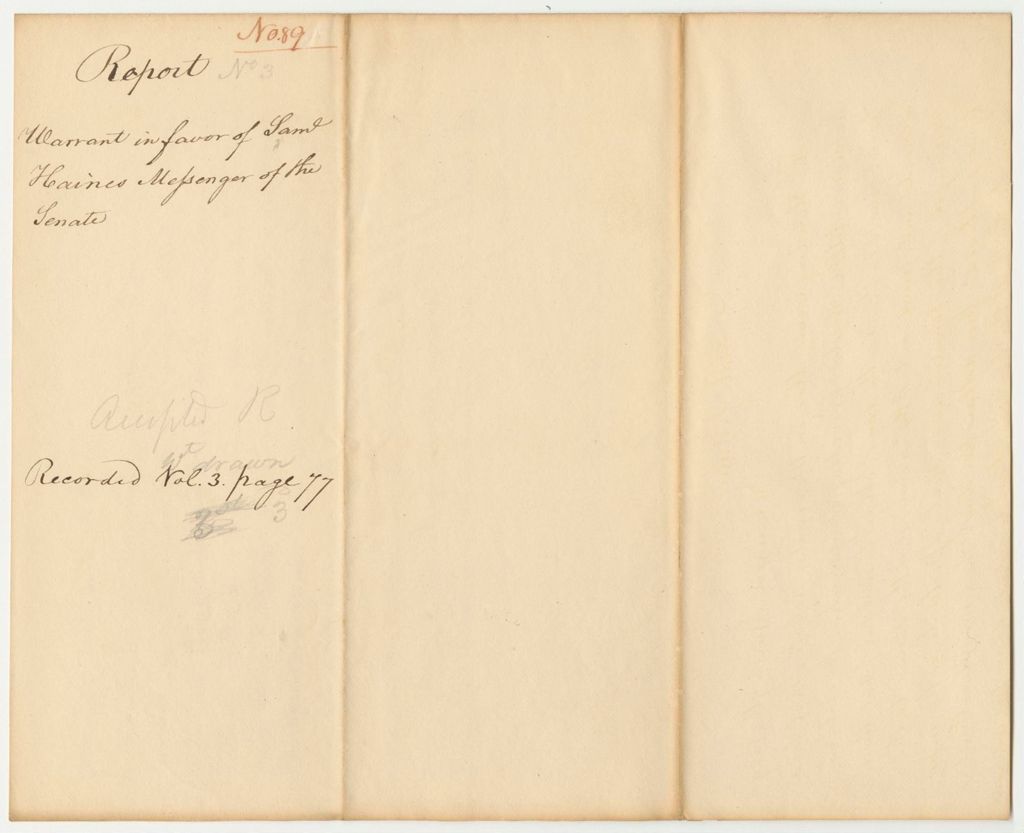 No. 89
Report No 3
Warrant in favor of Saml
Haines Messenger of the
Senate
Accepted R
Wt drawn
Recorded Vol. 3. page 77
3